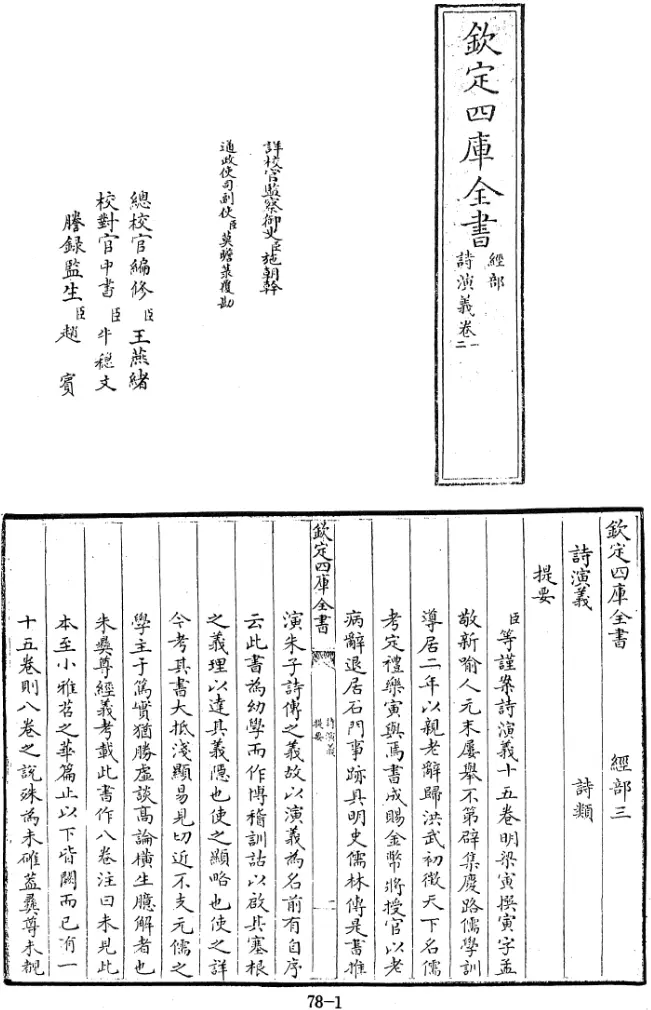 欽定四庫全書
經部
詩演義卷一二
詳校官監察御史臣施朝幹
通政使司副使臣莫瞻菉覆勘
總校官編修臣王燕緒
校對官中書臣牛稔文
謄錄監生臣趙賓
欽定四庫全書 經部三
詩演義 詩類
提要
臣等謹案詩演義十五卷明梁寅撰寅字孟
敬新喻人元末屢舉不第辟集慶路儒學訓
導居二年以親老辭歸洪武初徵天下名儒
考定禮樂寅與焉書成賜金幣將授官以老
病辭退居石門事跡具明史儒林傳是書推
欽定四庫全書
詩演義
提要
一
演朱子詩傳之義故以演義為名前有自序
云此書為幼學而作博稽訓詁以啟其塞根
之義理以達其義隱也使之顯略也使之詳
今考其書大抵淺顯易見切近不支元儒之
學主于篤實猶勝虛談高論橫生臆解者也
朱彝尊經義考載此書作八卷注曰未見此
本至小雅苕之華篇止以下皆闕而已有一
十五卷則八卷之說殊為未確蓋彝尊未覩
78-1